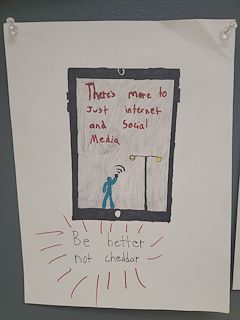 There's more to
Just internet
and Social
Media
Be better
not cheddar